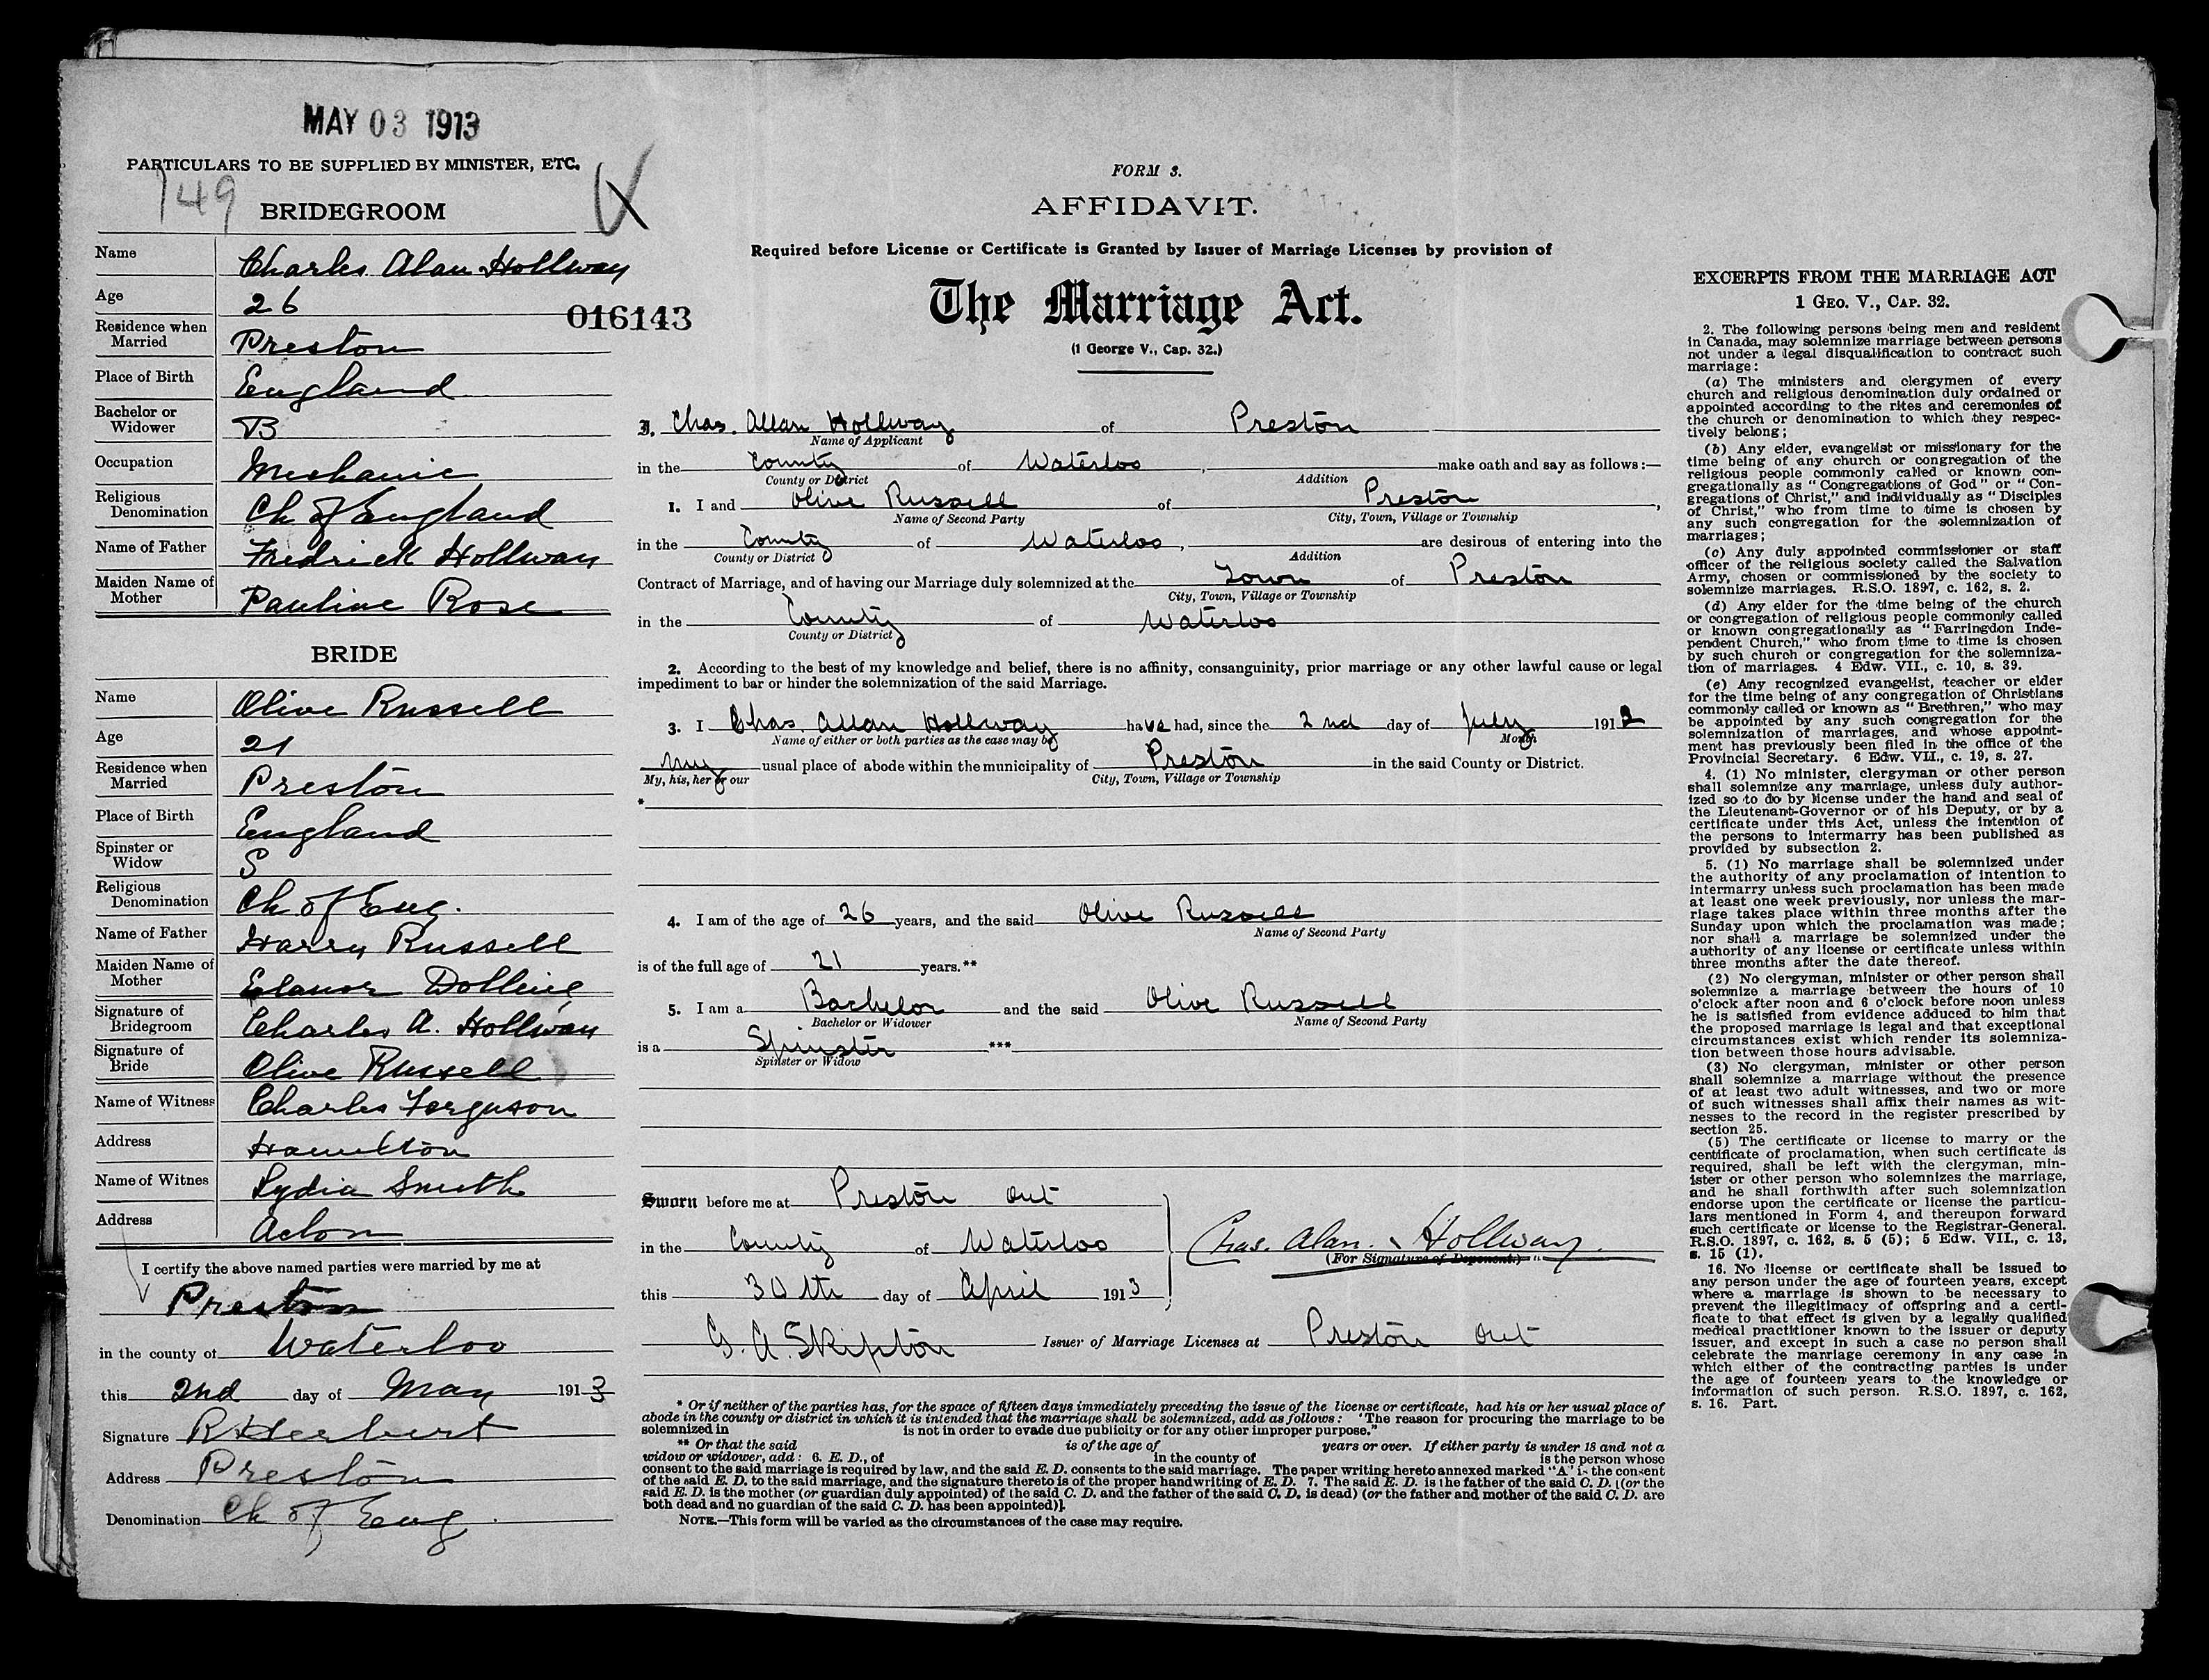 MAY 03 1913
PARTICULARS TO BE SUPPLIED BY MINISTER, ETC.
149
BRIDEGROOM
Name Charles Alan Hollway
Age 26
016143
Residence when Married Preston
Place of Birth England
Bachelor or Widower B
Occupation Mechanic
Religious Denomination Ch of England
Name of Father Fredrick Hollway
Maiden Name of Mother Pauline Rose
BRIDE
Name Olive Russell
Age 21
Residence when Married Preston
Place of Birth England
Spinster or Widow S
Religious Denomination Ch of Eng.
Name of Father Harry Russell
Maiden Name of Mother Elanor Dolling
Signature of Bridegroom Charles A. Hollway
Signature of Bride Olive Russell
Name of Witness Charles Ferguson
Address Hamilton
Name of Witnes Lydia Smith
Address Acton
I certify the above named parties were married by me at
Preston
in the county of Waterloo
this 2nd day of May 1913
Signature R Herbert
Address Preston
Denomination Ch of Eng.
FORM 3.
AFFIDAVIT.
Required before License or Certificate is Granted by Issuer of Marriage Licenses by provision of
The Marriage Act.
(1 George V., Cap. 32.)
I, Chas. Allan Hollway of Preston
Name of Applicant
in the County of Waterloo, make oath and say as follows:—
County or District Addition
1. I and Olive Russell of Preston,
Name of Second Party City, Town, Village or Township
in the County of Waterloo, are desirous of entering into the
County or District Addition
Contract of Marriage, and of having our Marriage duly solemnized at the Town of Preston
City, Town, Village or Township
in the County of Waterloo
County or District
2. According to the best of my knowledge and belief, there is no affinity, consanguinity, prior marriage or any other lawful cause or legal
impediment to bar or hinder the solemnization of the said Marriage.
3. I Chas. Allan Hollway have had, since the 2nd day of July 1912
Name of either or both parties as the case may be Month
my usual place of abode within the municipality of Preston in the said County or District.
My, his, her or our City, Town, Village or Township
*
4. I am of the age of 26 years, and the said Olive Russell
Name of Second Party
is of the full age of 21 years.**
5. I am a Bachelor and the said Olive Russell
Bachelor or Widower Name of Second Party
is a Spinster ***
Spinster or Widow
Sworn before me at Preston Ont
in the County of Waterloo
this 30th day of April 1913
Chas. Alan. Hollway.
(For Signature of Deponent.)
G. A. Skipton Issuer of Marriage Licenses at Preston Ont
* Or if neither of the parties has, for the space of fifteen days immediately preceding the issue of the license or certificate, had his or her usual place of
abode in the county or district in which it is intended that the marriage shall be solemnized, add as follows: 'The reason for procuring the marriage to be
solemnized in is not in order to evade due publicity or for any other improper purpose."
** Or that the said is of the age of years or over. If either party is under 18 and not a
widow or widower, add: 6. E. D., of in the county of is the person whose
consent to the said marriage is required by law, and the said E. D. consents to the said marriage. The paper writing hereto annexed marked "A" is the consent
of the said E. D. to the said marriage, and the signature thereto is of the proper handwriting of E. D. 7. The said E. D. is the father of the said C. D. [(or the
said E. D. is the mother (or guardian duly appointed) of the said C. D. and the father of the said C. D. is dead) (or the father and mother of the said C. D. are
both dead and no guardian of the said C. D. has been appointed)].
NOTE.—This form will be varied as the circumstances of the case may require.
EXCERPTS FROM THE MARRIAGE ACT
1 GEO. V., CAP. 32.
2. The following persons being men and resident
in Canada, may solemnize marriage between persons
not under a legal disqualification to contract such
marriage:
(a) The ministers and clergymen of every
church and religious denomination duly ordained or
appointed according to the rites and ceremonies of
the church or denomination to which they respec-
tively belong;
(b) Any elder, evangelist or missionary for the
time being of any church or congregation of the
religious people commonly called or known con-
gregationally as "Congregations of God" or "Con-
gregations of Christ," and individually as "Disciples
of Christ," who from time to time is chosen by
any such congregation for the solemnization of
marriages;
(c) Any duly appointed commissioner or staff
officer of the religious society called the Salvation
Army, chosen or commissioned by the society to
solemnize marriages. R.S.O. 1897, c. 162, s. 2.
(d) Any elder for the time being of the church
or congregation of religious people commonly called
or known congregationally as "Farringdon Inde-
pendent Church," who from time to time is chosen
by such church or congregation for the solemniza-
tion of marriages. 4 Edw. VII., c. 10, s. 39.
(e) Any recognized evangelist, teacher or elder
for the time being of any congregation of Christians
commonly called or known as "Brethren," who may
be appointed by any such congregation for the
solemnization of marriages, and whose appoint-
ment has previously been filed in the office of the
Provincial Secretary. 6 Edw. VII., c. 19, s. 27.
4. (1) No minister, clergyman or other person
shall solemnize any marriage, unless duly author-
ized so to do by license under the hand and seal of
the Lieutenant-Governor or of his Deputy, or by a
certificate under this Act, unless the intention of
the persons to intermarry has been published as
provided by subsection 2.
5. (1) No marriage shall be solemnized under
the authority of any proclamation of intention to
intermarry unless such proclamation has been made
at least one week previously, nor unless the mar-
riage takes place within three months after the
Sunday upon which the proclamation was made;
nor shall a marriage be solemnized under the
authority of any license or certificate unless within
three months after the date thereof.
(2) No clergyman, minister or other person shall
solemnize a marriage between the hours of 10
o'clock after noon and 6 o'clock before noon unless
he is satisfied from evidence adduced to him that
the proposed marriage is legal and that exceptional
circumstances exist which render its solemniza-
tion between those hours advisable.
(3) No clergyman, minister or other person
shall solemnize a marriage without the presence
of at least two adult witnesses, and two or more
of such witnesses shall affix their names as wit-
nesses to the record in the register prescribed by
section 25.
(5) The certificate or license to marry or the
certificate of proclamation, when such certificate is
required, shall be left with the clergyman, min-
ister or other person who solemnizes the marriage,
and he shall forthwith after such solemnization
endorse upon the certificate or license the particu-
lars mentioned in Form 4, and thereupon forward
such certificate or license to the Registrar-General.
R.S.O. 1897, c. 162, s. 5 (5); 5 Edw. VII., c. 13,
s. 15 (1).
16. No license or certificate shall be issued to
any person under the age of fourteen years, except
where a marriage is shown to be necessary to
prevent the illegitimacy of offspring and a certi-
ficate to that effect is given by a legally qualified
medical practitioner known to the issuer or deputy
issuer, and except in such a case no person shall
celebrate the marriage ceremony in any case in
which either of the contracting parties is under
the age of fourteen years to the knowledge or
information of such person. R.S.O. 1897, c. 162,
s. 16. Part.